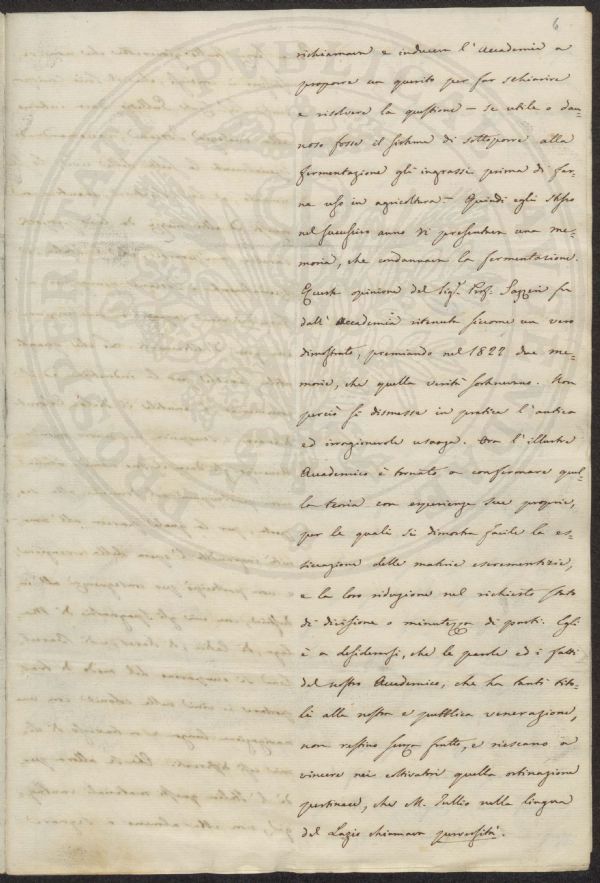 6
richiamava e induceva l'Accademia a
proporre un quesito per far schiarire
e risolvere la questione – se utile o dan=
noso fosse il sistema di sottoporre alla
fermentazione gli ingrassi prima di far=
ne uso in agricoltura – Quindi egli stesso
nel successivo anno vi presentava una me=
moria, che condannava la fermentazione.
Questa opinione del Sig.r Prof. Gazzeri fu
dall'Accademia ritenuta siccome un vero
dimostrato, premiando nel 1822 due me=
morie, che quella verità sostenevano. Non
perciò si dismesse in pratica l'antica
ed irragionevole usanza. Ora l'illustre
Accademico è tornato a confermare quel=
la teoria con esperienze sue proprie,
per le quali si dimostra facile la es=
siccazione delle materie escrementizie,
e la loro riduzione nel richiesto stato
di divisione o minutezza di parti. Egli
è a desiderarsi, che le parole ed i fatti
del nostro Accademico, che ha tanti tito=
li alla nostra e pubblica venerazione,
non restino senza frutto, e riescano a
vincere nei coltivatori quella ostinazione
pertinace, che M. Tullio nella lingua
del Lazio chiamava perversità.
PROSPERITATI PVBLICAE